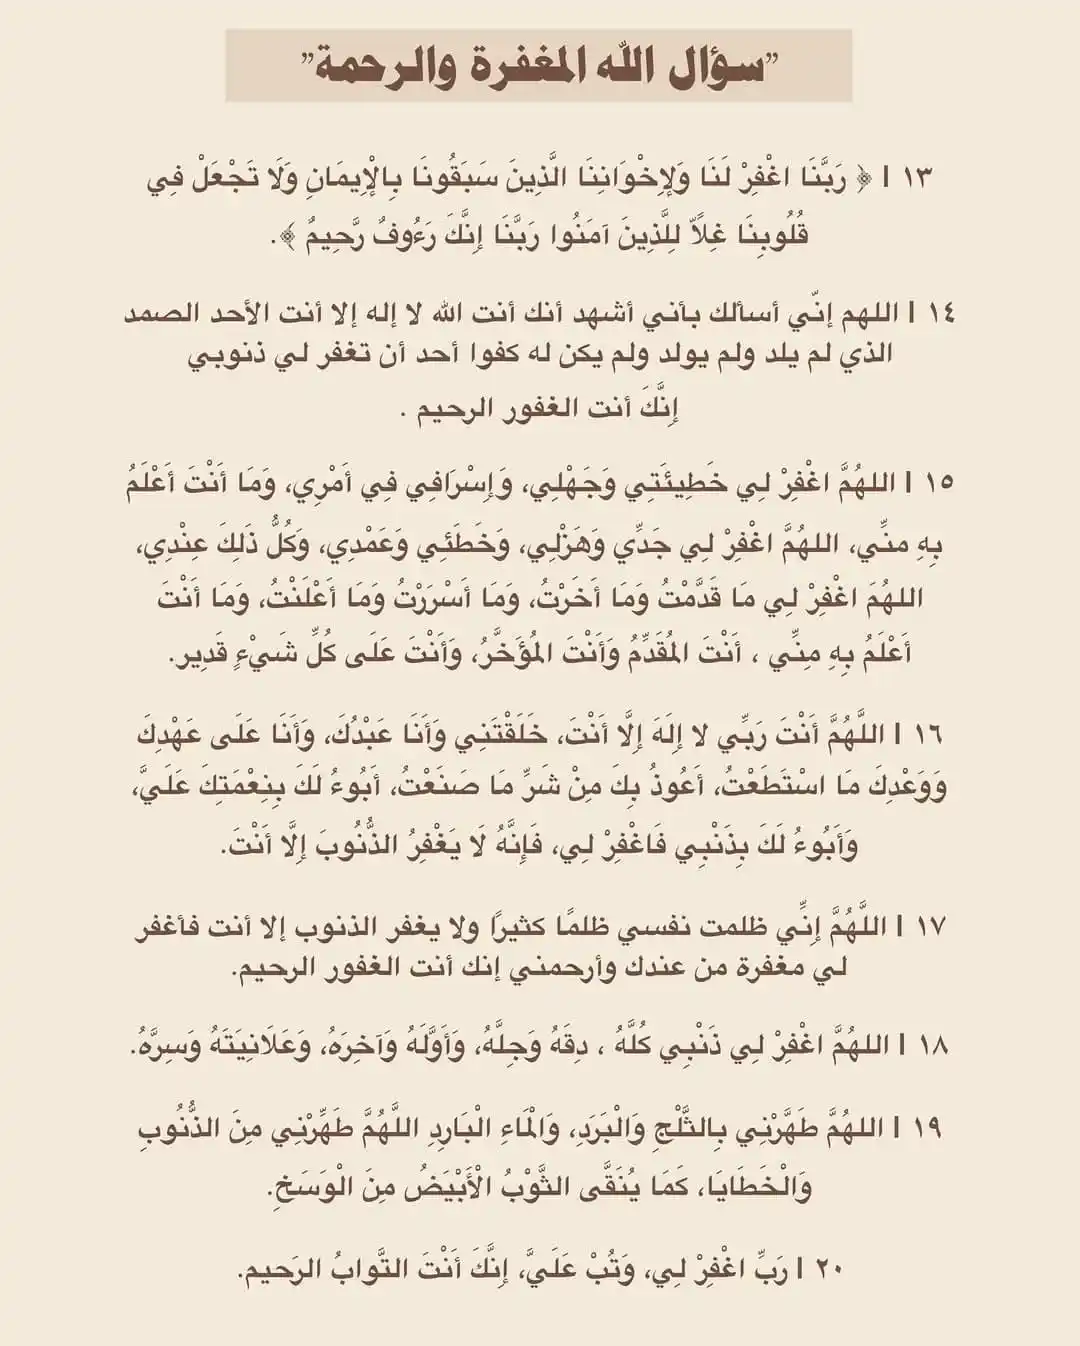 ”سؤال الله المغفرة والرحمة”
١٣ | ﴿ رَبَّنَا اغْفِرْ لَنَا وَلِإِخْوَانِنَا الَّذِينَ سَبَقُونَا بِالْإِيمَانِ وَلَا تَجْعَلْ فِي
قُلُوبِنَا غِلاًّ لِلَّذِينَ آمَنُوا رَبَّنَا إِنَّكَ رَءُوفٌ رَّحِيمٌ ﴾.
١٤ | اللهم إنّي أسألك بأني أشهد أنك أنت الله لا إله إلا أنت الأحد الصمد
الذي لم يلد ولم يولد ولم يكن له كفوا أحد أن تغفر لي ذنوبي
إِنَّكَ أنت الغفور الرحيم .
١٥ | اللهُمَّ اغْفِرْ لِي خَطِيئَتِي وَجَهْلِي، وَإِسْرَافِي فِي أَمْرِي، وَمَا أَنْتَ أَعْلَمُ
بِهِ منِّي، اللهُمَّ اغْفِرْ لِي جَدِّي وَهَزْلِي، وَخَطَئِي وَعَمْدِي، وَكُلُّ ذَلِكَ عِنْدِي،
اللهُمَ اغْفِرْ لِي مَا قَدَّمْتُ وَمَا أَخَرْتُ، وَمَا أَسْرَرْتُ وَمَا أَعْلَنْتُ، وَمَا أَنْتَ
أَعْلَمُ بِهِ مِنِّي ، أَنْتَ المُقَدِّمُ وَأَنْتَ المُؤَخَّرُ، وَأَنْتَ عَلَى كُلِّ شَيْءٍ قَدِير.
١٦ | اللَّهُمَّ أَنْتَ رَبِّي لا إِلَهَ إِلَّا أَنْتَ، خَلَقْتَنِي وَأَنَا عَبْدُكَ، وَأَنَا عَلَى عَهْدِكَ
وَوَعْدِكَ مَا اسْتَطَعْتُ، أَعُوذُ بِكَ مِنْ شَرِّ مَا صَنَعْتُ، أَبُوءُ لَكَ بِنِعْمَتِكَ عَلَيَّ،
وَأَبُوءُ لَكَ بِذَنْبِي فَاغْفِرْ لِي، فَإِنَّهُ لَا يَغْفِرُ الذُّنُوبَ إِلَّا أَنْتَ.
١٧ | اللَّهُمَّ إِنِّي ظلمت نفسي ظلمًا كثيرًا ولا يغفر الذنوب إلا أنت فأغفر
لي مغفرة من عندك وأرحمني إنك أنت الغفور الرحيم.
١٨ | اللهُمَّ اغْفِرْ لِي ذَنْبِي كُلَّهُ ، دِقَهُ وَجِلَّهُ، وَأَوَّلَهُ وَآخِرَهُ، وَعَلَانِيَتَهُ وَسِرَّهُ.
١٩ | اللهُمَّ طَهَّرْنِي بِالثَّلْجِ وَالْبَرَدِ، وَالْمَاءِ الْبَارِدِ اللَّهُمَّ طَهِّرْنِي مِنَ الذُّنُوبِ
وَالْخَطَايَا، كَمَا يُنَقَّى الثَّوْبُ الْأَبْيَضُ مِنَ الْوَسَخِ.
٢٠ | رَبِّ اغْفِرْ لِي، وَتُبْ عَلَيَّ، إِنَّكَ أَنْتَ التَّوابُ الرَحيم.